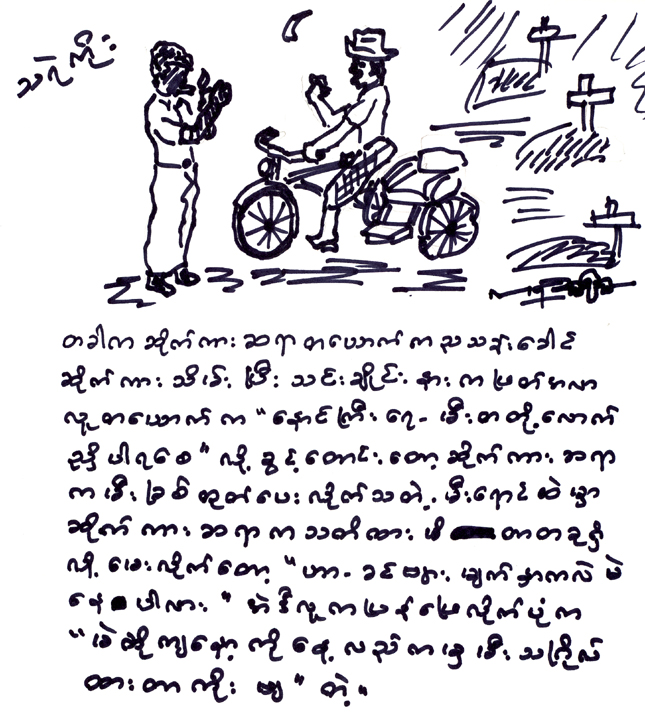 သရဲကိုး
တခါက ဆိုက်ကား ဆရာ တယောက် က ည သန်းခေါင်
ဆိုက်ကား သိမ်း ပြီး သင်းချိုင်း နား က ဖြတ်အလာ
လူတယောက် က "နောင်ကြီး ရေ- မီးတတို့လောက်
ညှိပါရစေ" လို့ ခွင့်တောင်းတော့ ဆိုက်ကား ဆရာ
က မီးခြစ် ထုတ်ပေး လိုက်သတဲ့. မီးရောင်ထဲမှာ
ဆိုက်ကား ဆရာ က သတိထားမိ တာတခုရှိ
လို့ မေးလိုက်တော့ "ဟာ- ခင်ဗျား မျက်နှာကလဲ မဲ
နေပါလား" အဲဒီလူက ပြန်ဖြေလိုက်ပုံက
"မဲဆို ကျနော့ ကို နေ့လည်ကမှ မီးသဂြိုလ်
ထားတာကိုးဗျ" တဲ့။